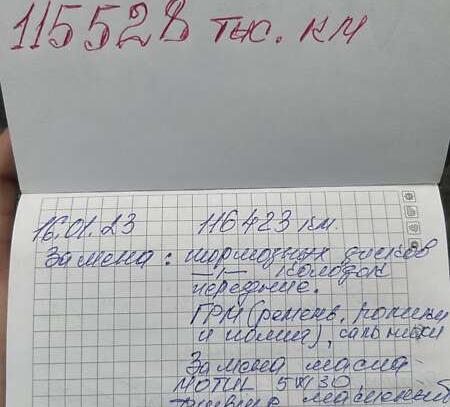 115528 тыс. км
16.01.23 116423 км.
Замена: тормозных дисков
—"— колодок
передние.
ГРМ (ремень, ролики
и помпа), сальники
Замена масла -
MOTUL 5W30
масленый